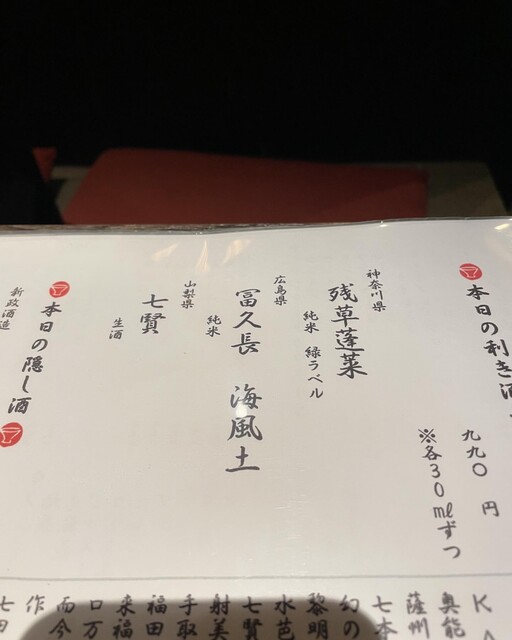 本日の利き酒
九九〇 円
※各30mlずつ
神奈川県
残草蓬莱
純米 緑ラベル
広島県
富久長 海風土
純米
山梨県
七賢
生酒
本日の隠し酒
新政酒造
奥能
薩州
七本
幻の
黎明
水芭
七賢
射美
手取
福田
来福
口万
而今
作
七田